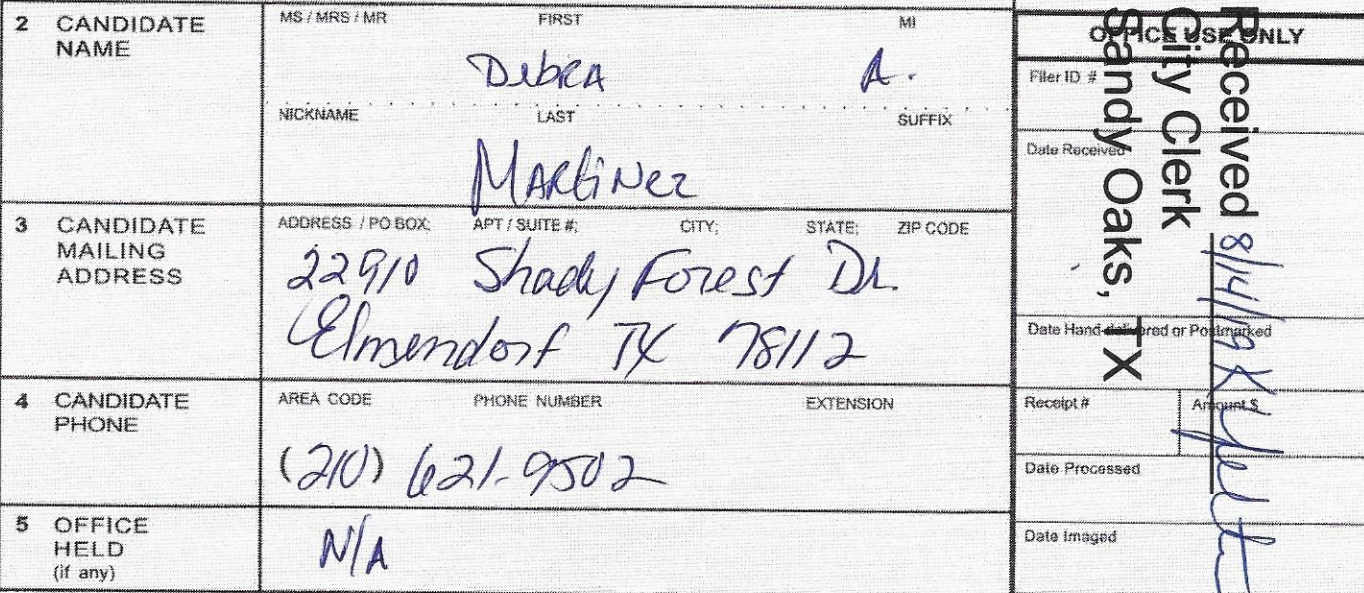 2 CANDIDATE NAME
MS / MRS / MR FIRST MI
Debra A.
NICKNAME LAST SUFFIX
Martinez
3 CANDIDATE MAILING ADDRESS
ADDRESS / PO BOX; APT / SUITE #; CITY; STATE; ZIP CODE
22910 Shady Forest Dr.
Elmendorf TX 78112
4 CANDIDATE PHONE
AREA CODE PHONE NUMBER EXTENSION
(210) 621-9502
5 OFFICE HELD (if any)
N/A
OFFICE USE ONLY
Filer ID #
Date Received
Date Hand-delivered or Postmarked
Receipt # Amount $
Date Processed
Date Imaged
Received 8/14/19
City Clerk
Sandy Oaks, TX